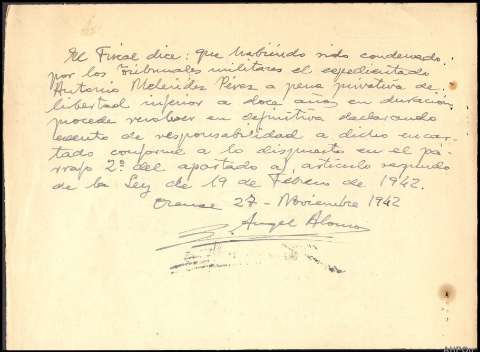 El Fiscal dice: que habiendo sido condenado
por los Tribunales militares el expedientado
Antonio Meléndez Pérez a pena privativa de
libertad inferior a doce años en duración
procede resolver en definitiva declarando
exento de responsabilidad a dicho encar-
tado conforme a lo dispuesto en el pá-
rrafo 2º del apartado a, artículo segundo
de la Ley de 19 de Febrero de 1942.
Orense 27 - Noviembre 1942
Angel Alonso
AHPOu